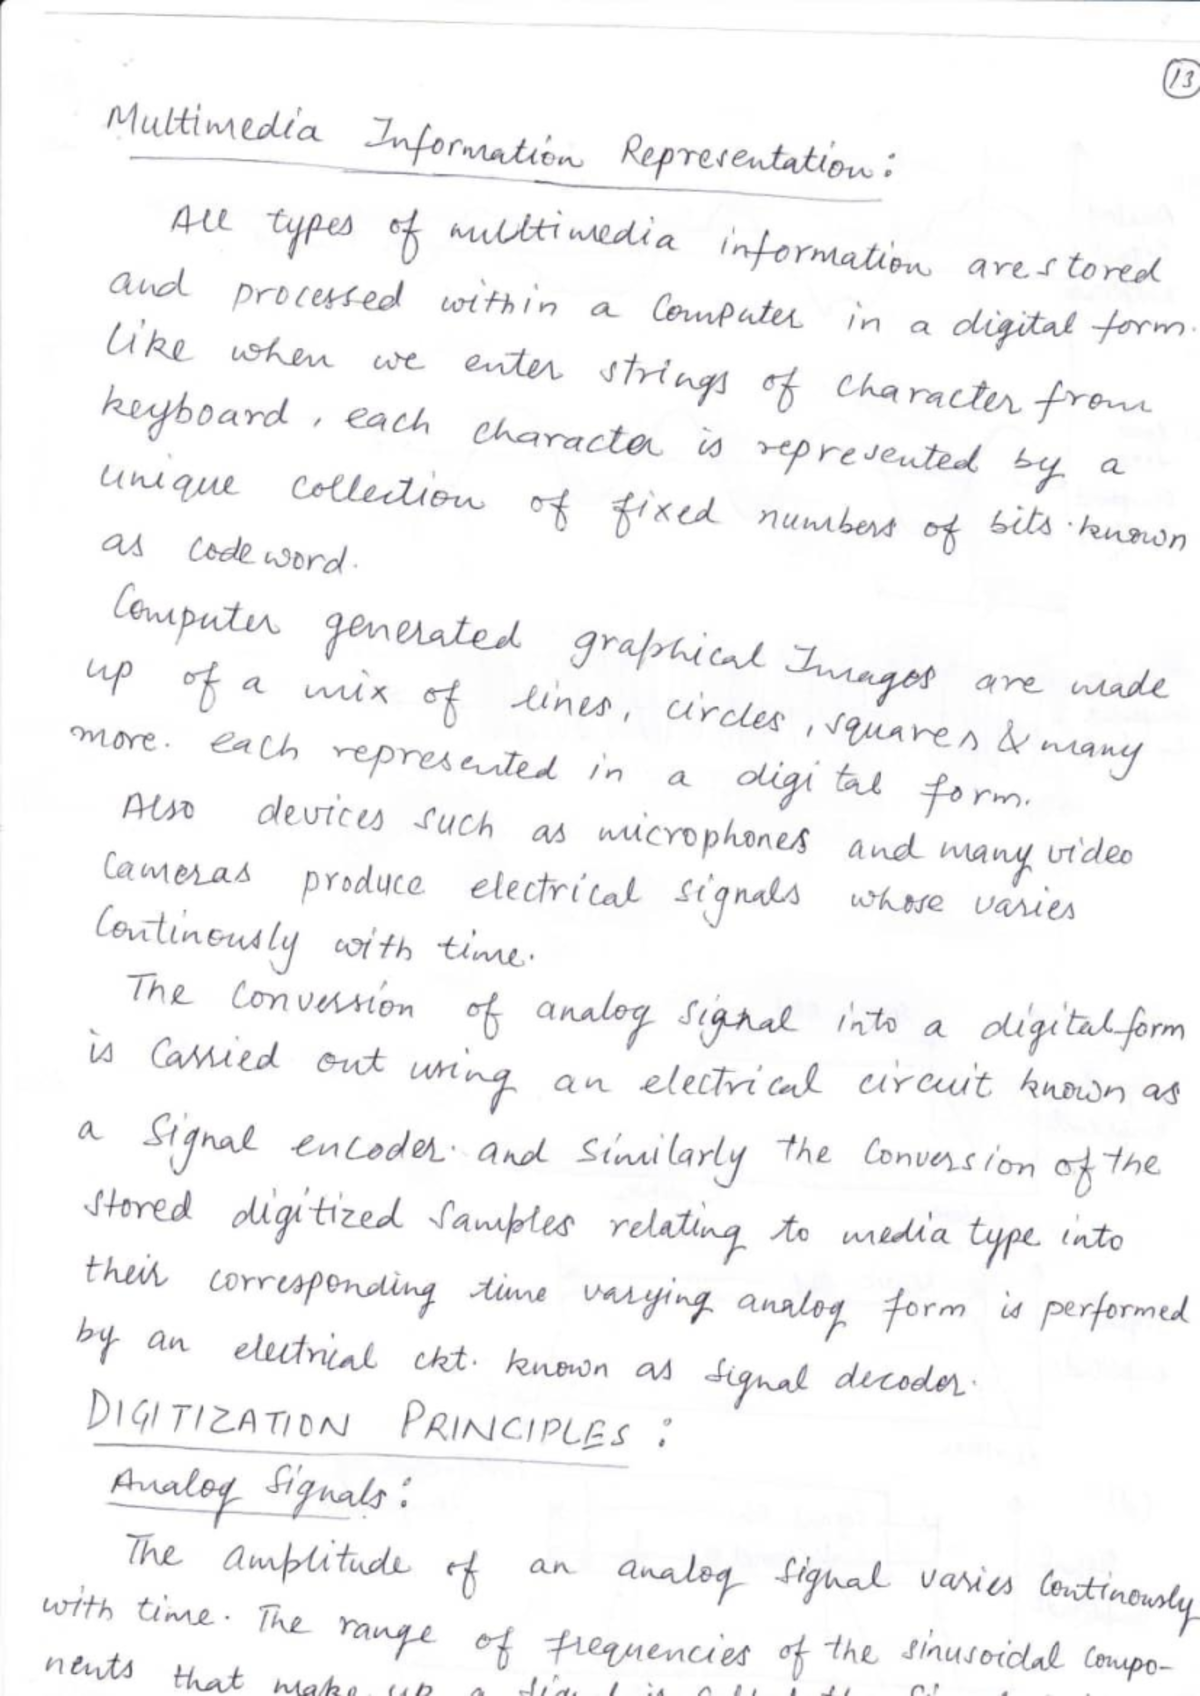 13
Multimedia Information Representation:
All types of multimedia information are stored
and processed within a Computer in a digital form.
like when we enter strings of character from
keyboard, each character is represented by a
unique collection of fixed numbers of bits. known
as codeword.
Computer generated graphical Images are made
up of a mix of lines, circles, squares & many
more. each represented in a digital form.
Also devices such as microphones and many video
Cameras produce electrical signals whose varies
Continously with time.
The Conversion of analog signal into a digital form
is Carried out using an electrical circuit known as
a Signal encoder. and similarly the Conversion of the
stored digitized Samples relating to media type into
their corresponding time varying analog form is performed
by an electrical ckt. known as signal decoder.
DIGITIZATION PRINCIPLES:
Analog Signals:
The amplitude of an analog signal varies Continously
with time. The range of frequencies of the sinusoidal compo-
nents that make up a signal is called the